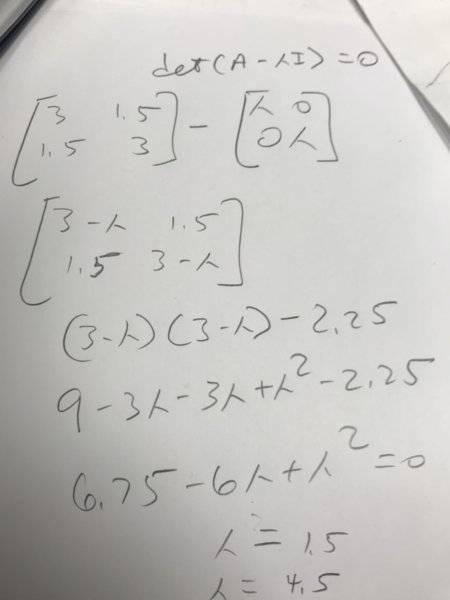 det(A-λI)=0
[3 1.5
1.5 3] - [λ 0
0 λ]
[3-λ 1.5
1.5 3-λ]
(3-λ)(3-λ)-2.25
9-3λ-3λ+λ²-2.25
6.75-6λ+λ²=0
λ=1.5
λ=4.5